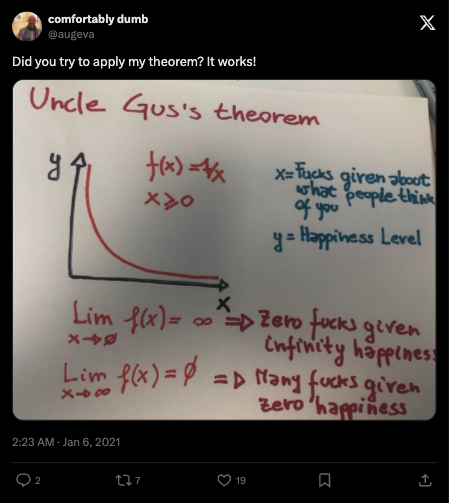 comfortably dumb
@augeva
Did you try to apply my theorem? It works!
Uncle Gus's theorem
y
f(x) = 1/x
x ⩾ 0
x = Fucks given about
what people think
of you
y = Happiness Level
x
Lim f(x) = ∞ => Zero fucks given
x→∅
infinity happiness
Lim f(x) = ∅ => Many fucks given
x→∞
zero happiness
2:23 AM · Jan 6, 2021
2
7
19